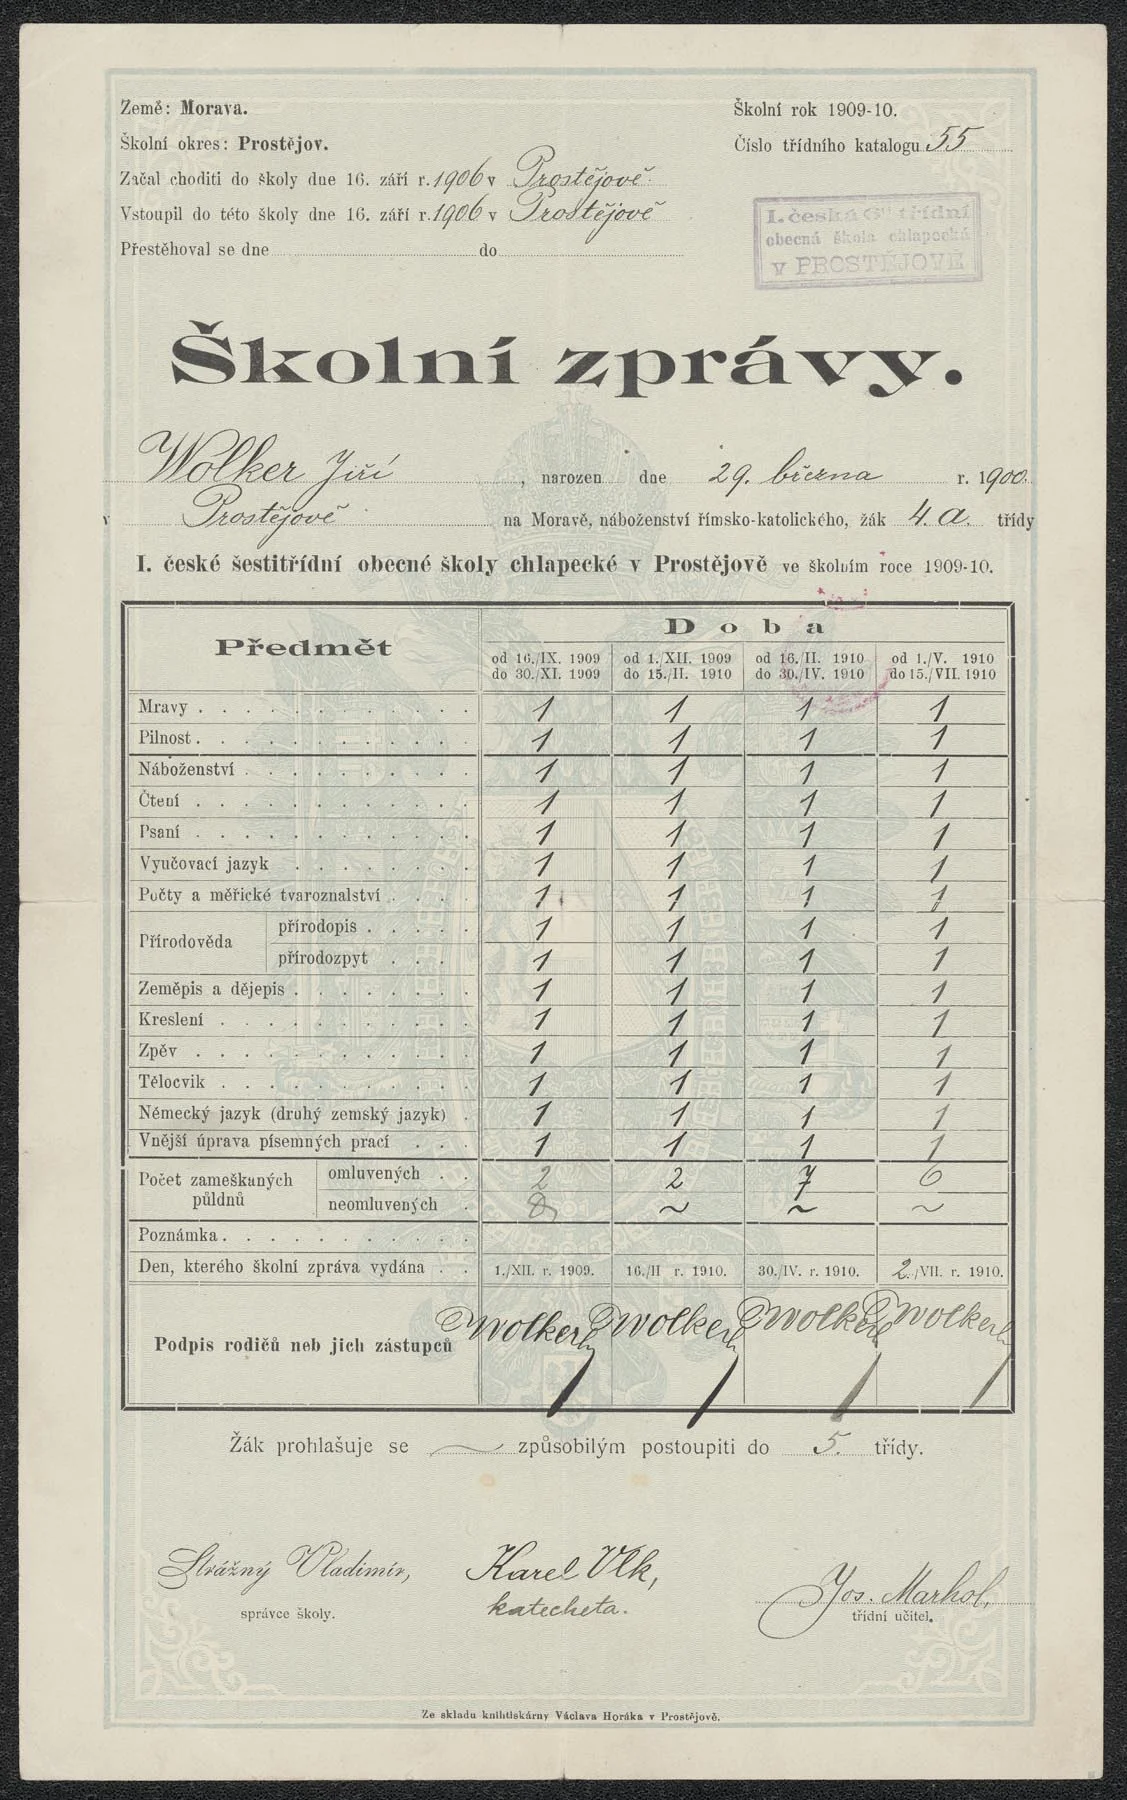 Země: Morava.
Školní rok 1909-10.
Školní okres: Prostějov.
Číslo třídního katalogu 55
Začal choditi do školy dne 16. září r. 1906 v Prostějově
Vstoupil do této školy dne 16. září r. 1906 v Prostějově
Přestěhoval se dne do
I. česká 6ti třídní
obecná škola chlapecká
v PROSTĚJOVĚ
Školní zprávy.
Wolker Jiří, narozen dne 29. března r. 1900.
v Prostějově na Moravě, náboženství římsko-katolického, žák 4. a. třídy
I. české šestitřídní obecné školy chlapecké v Prostějově ve školním roce 1909-10.
Předmět
Doba
od 16./IX. 1909 od 1./XII. 1909 od 16./II. 1910 od 1./V. 1910
do 30./XI. 1909 do 15./II. 1910 do 30./IV. 1910 do 15./VII. 1910
Mravy 1 1 1 1
Pilnost 1 1 1 1
Náboženství 1 1 1 1
Čtení 1 1 1 1
Psaní 1 1 1 1
Vyučovací jazyk 1 1 1 1
Počty a měřické tvaroznalství 1 1 1 1
Přírodověda
přírodopis 1 1 1 1
přírodozpyt 1 1 1 1
Zeměpis a dějepis 1 1 1 1
Kreslení 1 1 1 1
Zpěv 1 1 1 1
Tělocvik 1 1 1 1
Německý jazyk (druhý zemský jazyk) 1 1 1 1
Vnější úprava písemných prací 1 1 1 1
Počet zameškaných
půldnů
omluvených 2 2 7 6
neomluvených ~ ~ ~
Poznámka
Den, kterého školní zpráva vydána 1./XII. r. 1909. 16./II r. 1910. 30./IV. r. 1910. 2./VII. r. 1910.
Podpis rodičů neb jich zástupců Wolker Wolker Wolker Wolker
Žák prohlašuje se ~ způsobilým postoupiti do 5. třídy.
Strážný Vladimír,
správce školy.
Karel Vlk,
katecheta.
Jos. Marhol,
třídní učitel.
Ze skladu knihtiskárny Václava Horáka v Prostějově.